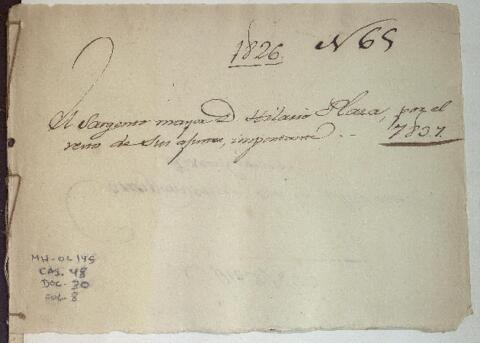 1826. N 65
Al Sargento mayor D Hilario Plaza, por el
resto de sus ajustes, importante .. 7837.
MH-OL 145
CAJ. 48
DOC. 30
FOL. 8